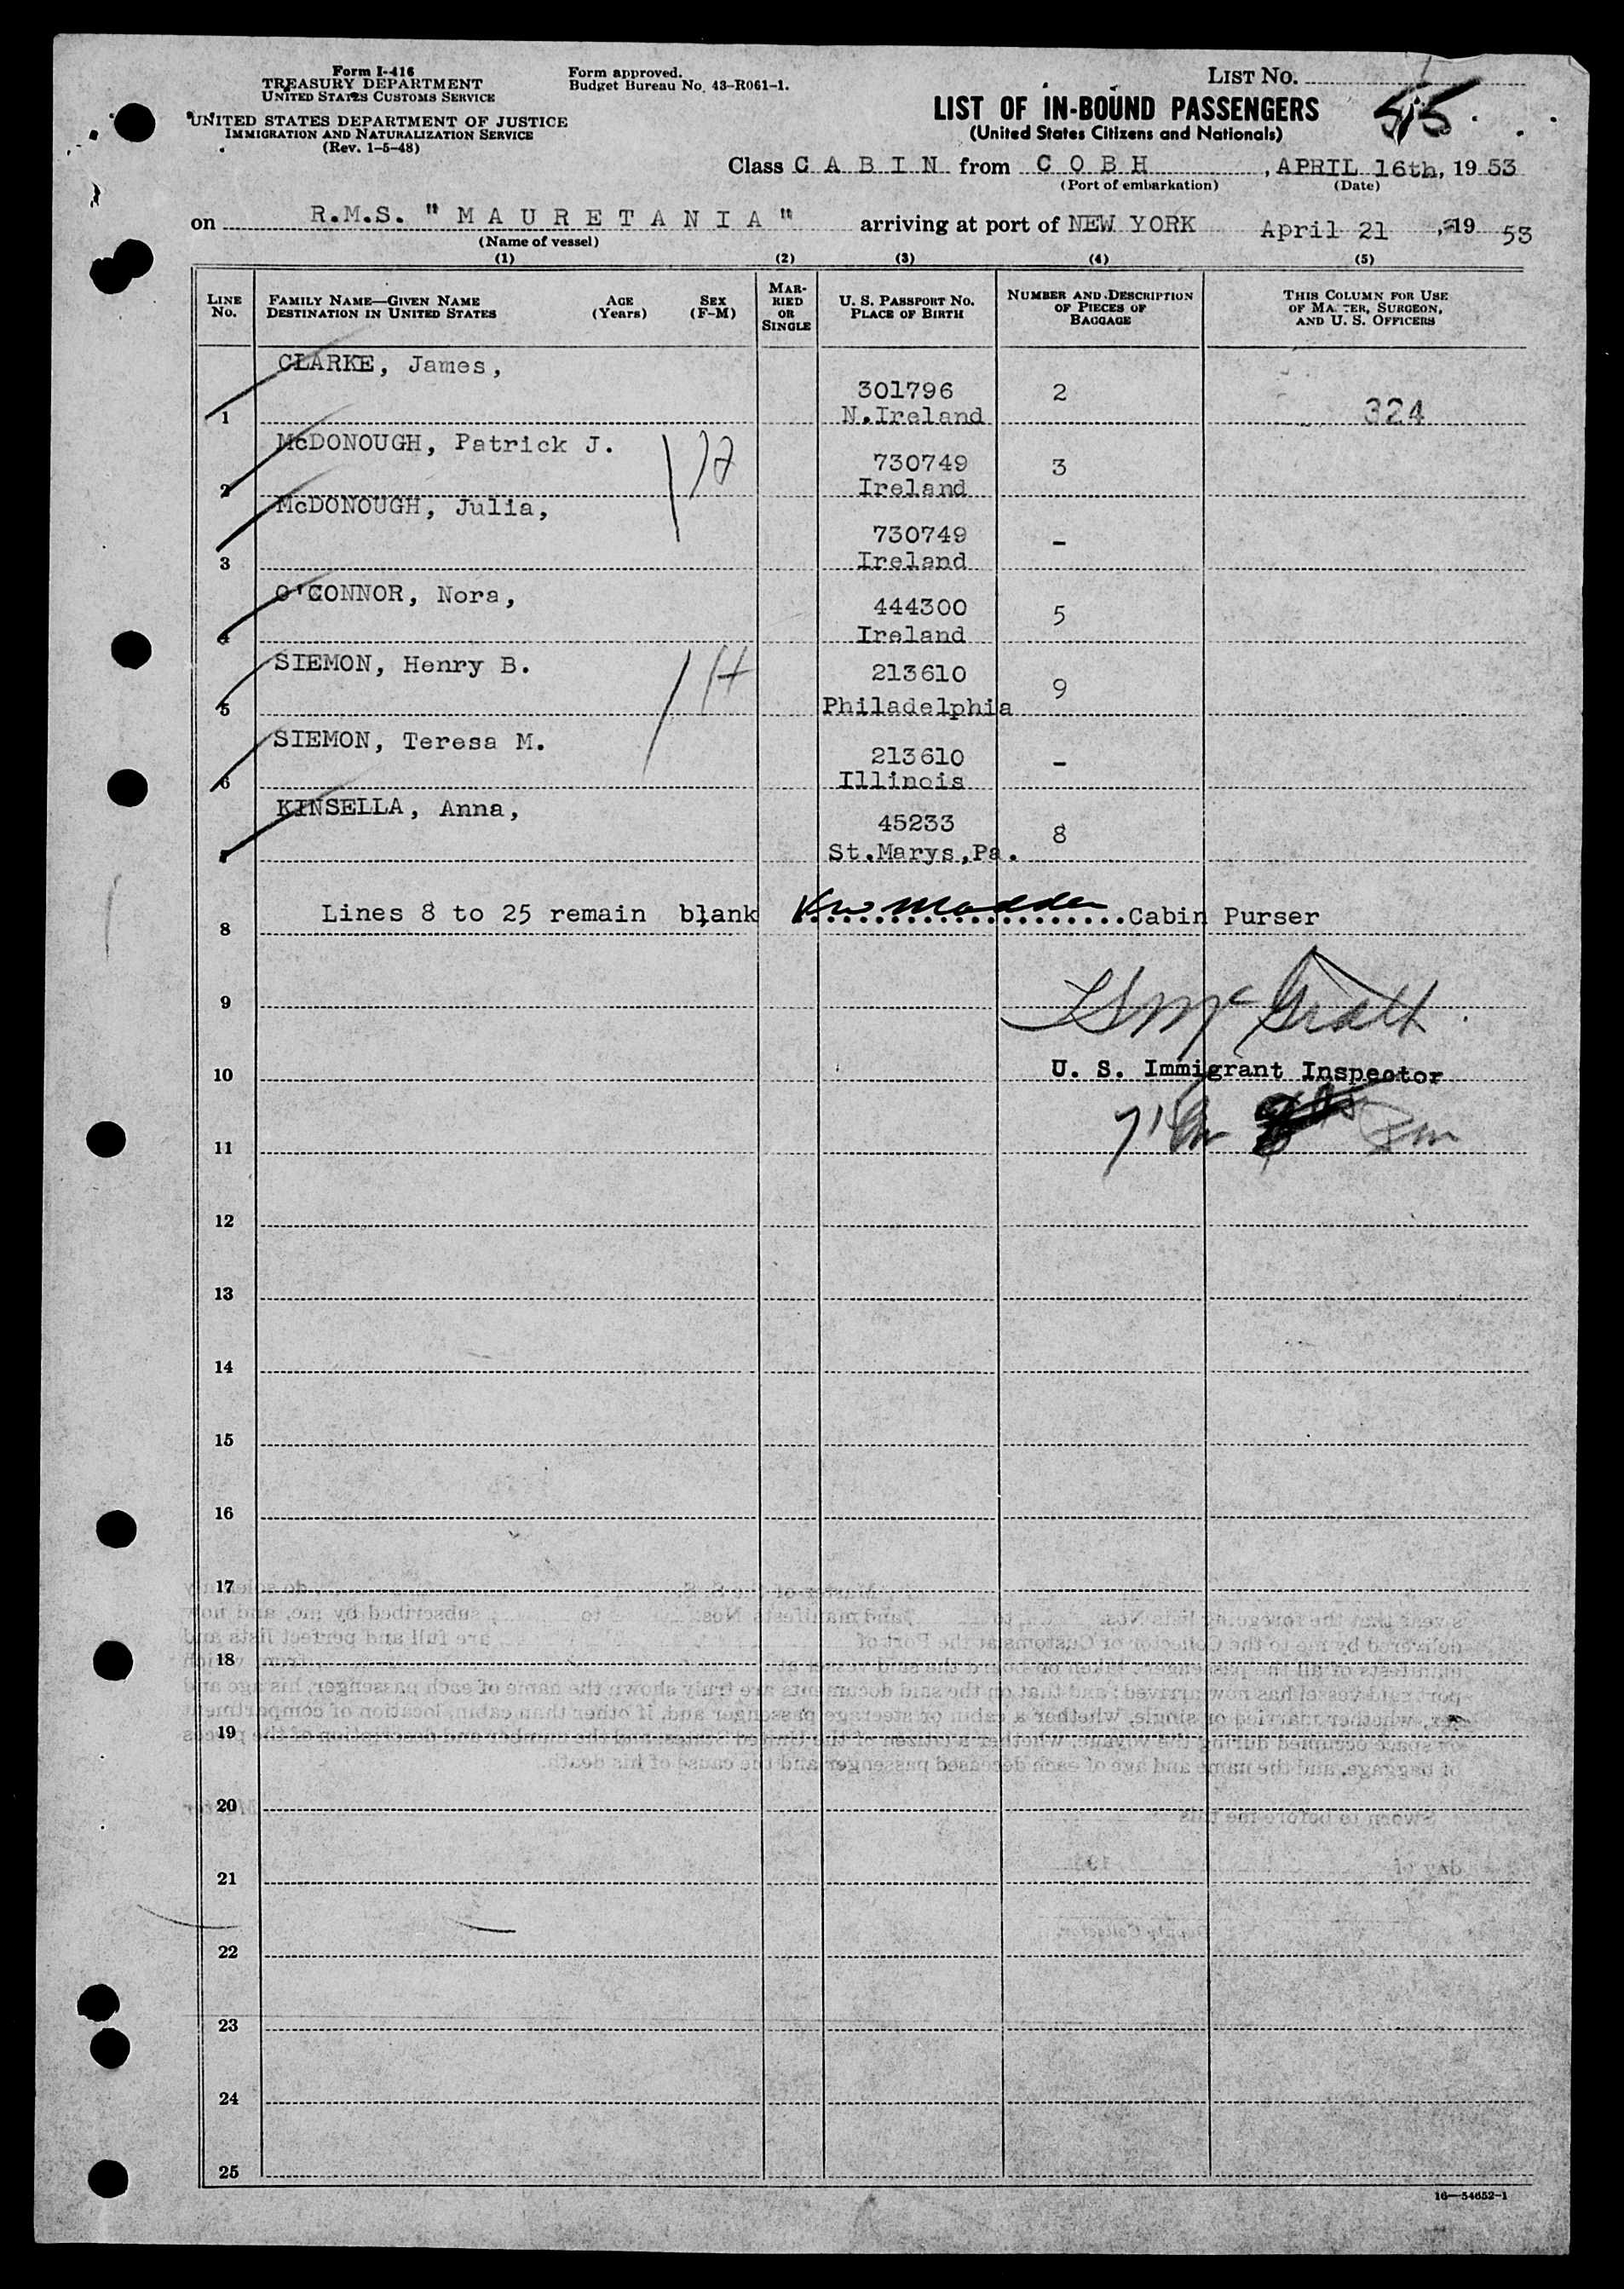 Form I-416
TREASURY DEPARTMENT
UNITED STATES CUSTOMS SERVICE
UNITED STATES DEPARTMENT OF JUSTICE
IMMIGRATION AND NATURALIZATION SERVICE
(Rev. 1-5-48)
Form approved.
Budget Bureau No. 43-R061-1.
LIST NO.
LIST OF IN-BOUND PASSENGERS
(United States Citizens and Nationals)
Class C A B I N from C O B H , APRIL 16th, 19 53
(Port of embarkation) (Date)
on R.M.S. "M A U R E T A N I A" arriving at port of NEW YORK April 21 , 19 53
(Name of vessel)
(1) (2) (3) (4) (5)
LINE NO.
FAMILY NAME—GIVEN NAME
DESTINATION IN UNITED STATES
AGE (Years)
SEX (F-M)
MARRIED OR SINGLE
U. S. PASSPORT NO.
PLACE OF BIRTH
NUMBER AND DESCRIPTION OF PIECES OF BAGGAGE
THIS COLUMN FOR USE OF MASTER, SURGEON, AND U. S. OFFICERS
1 CLARKE, James, 301796 N.Ireland 2 324
2 McDONOUGH, Patrick J. 730749 Ireland 3
3 McDONOUGH, Julia, 730749 Ireland -
4 O'CONNOR, Nora, 444300 Ireland 5
5 SIEMON, Henry B. 213610 Philadelphia 9
6 SIEMON, Teresa M. 213610 Illinois -
KINSELLA, Anna, 45233 St.Marys,Pa. 8
8 Lines 8 to 25 remain blank Madden Cabin Purser
9 McGrath
10 U. S. Immigrant Inspector
11
12
13
14
15
16
17
18
19
20
21
22
23
24
25
16—54652-1